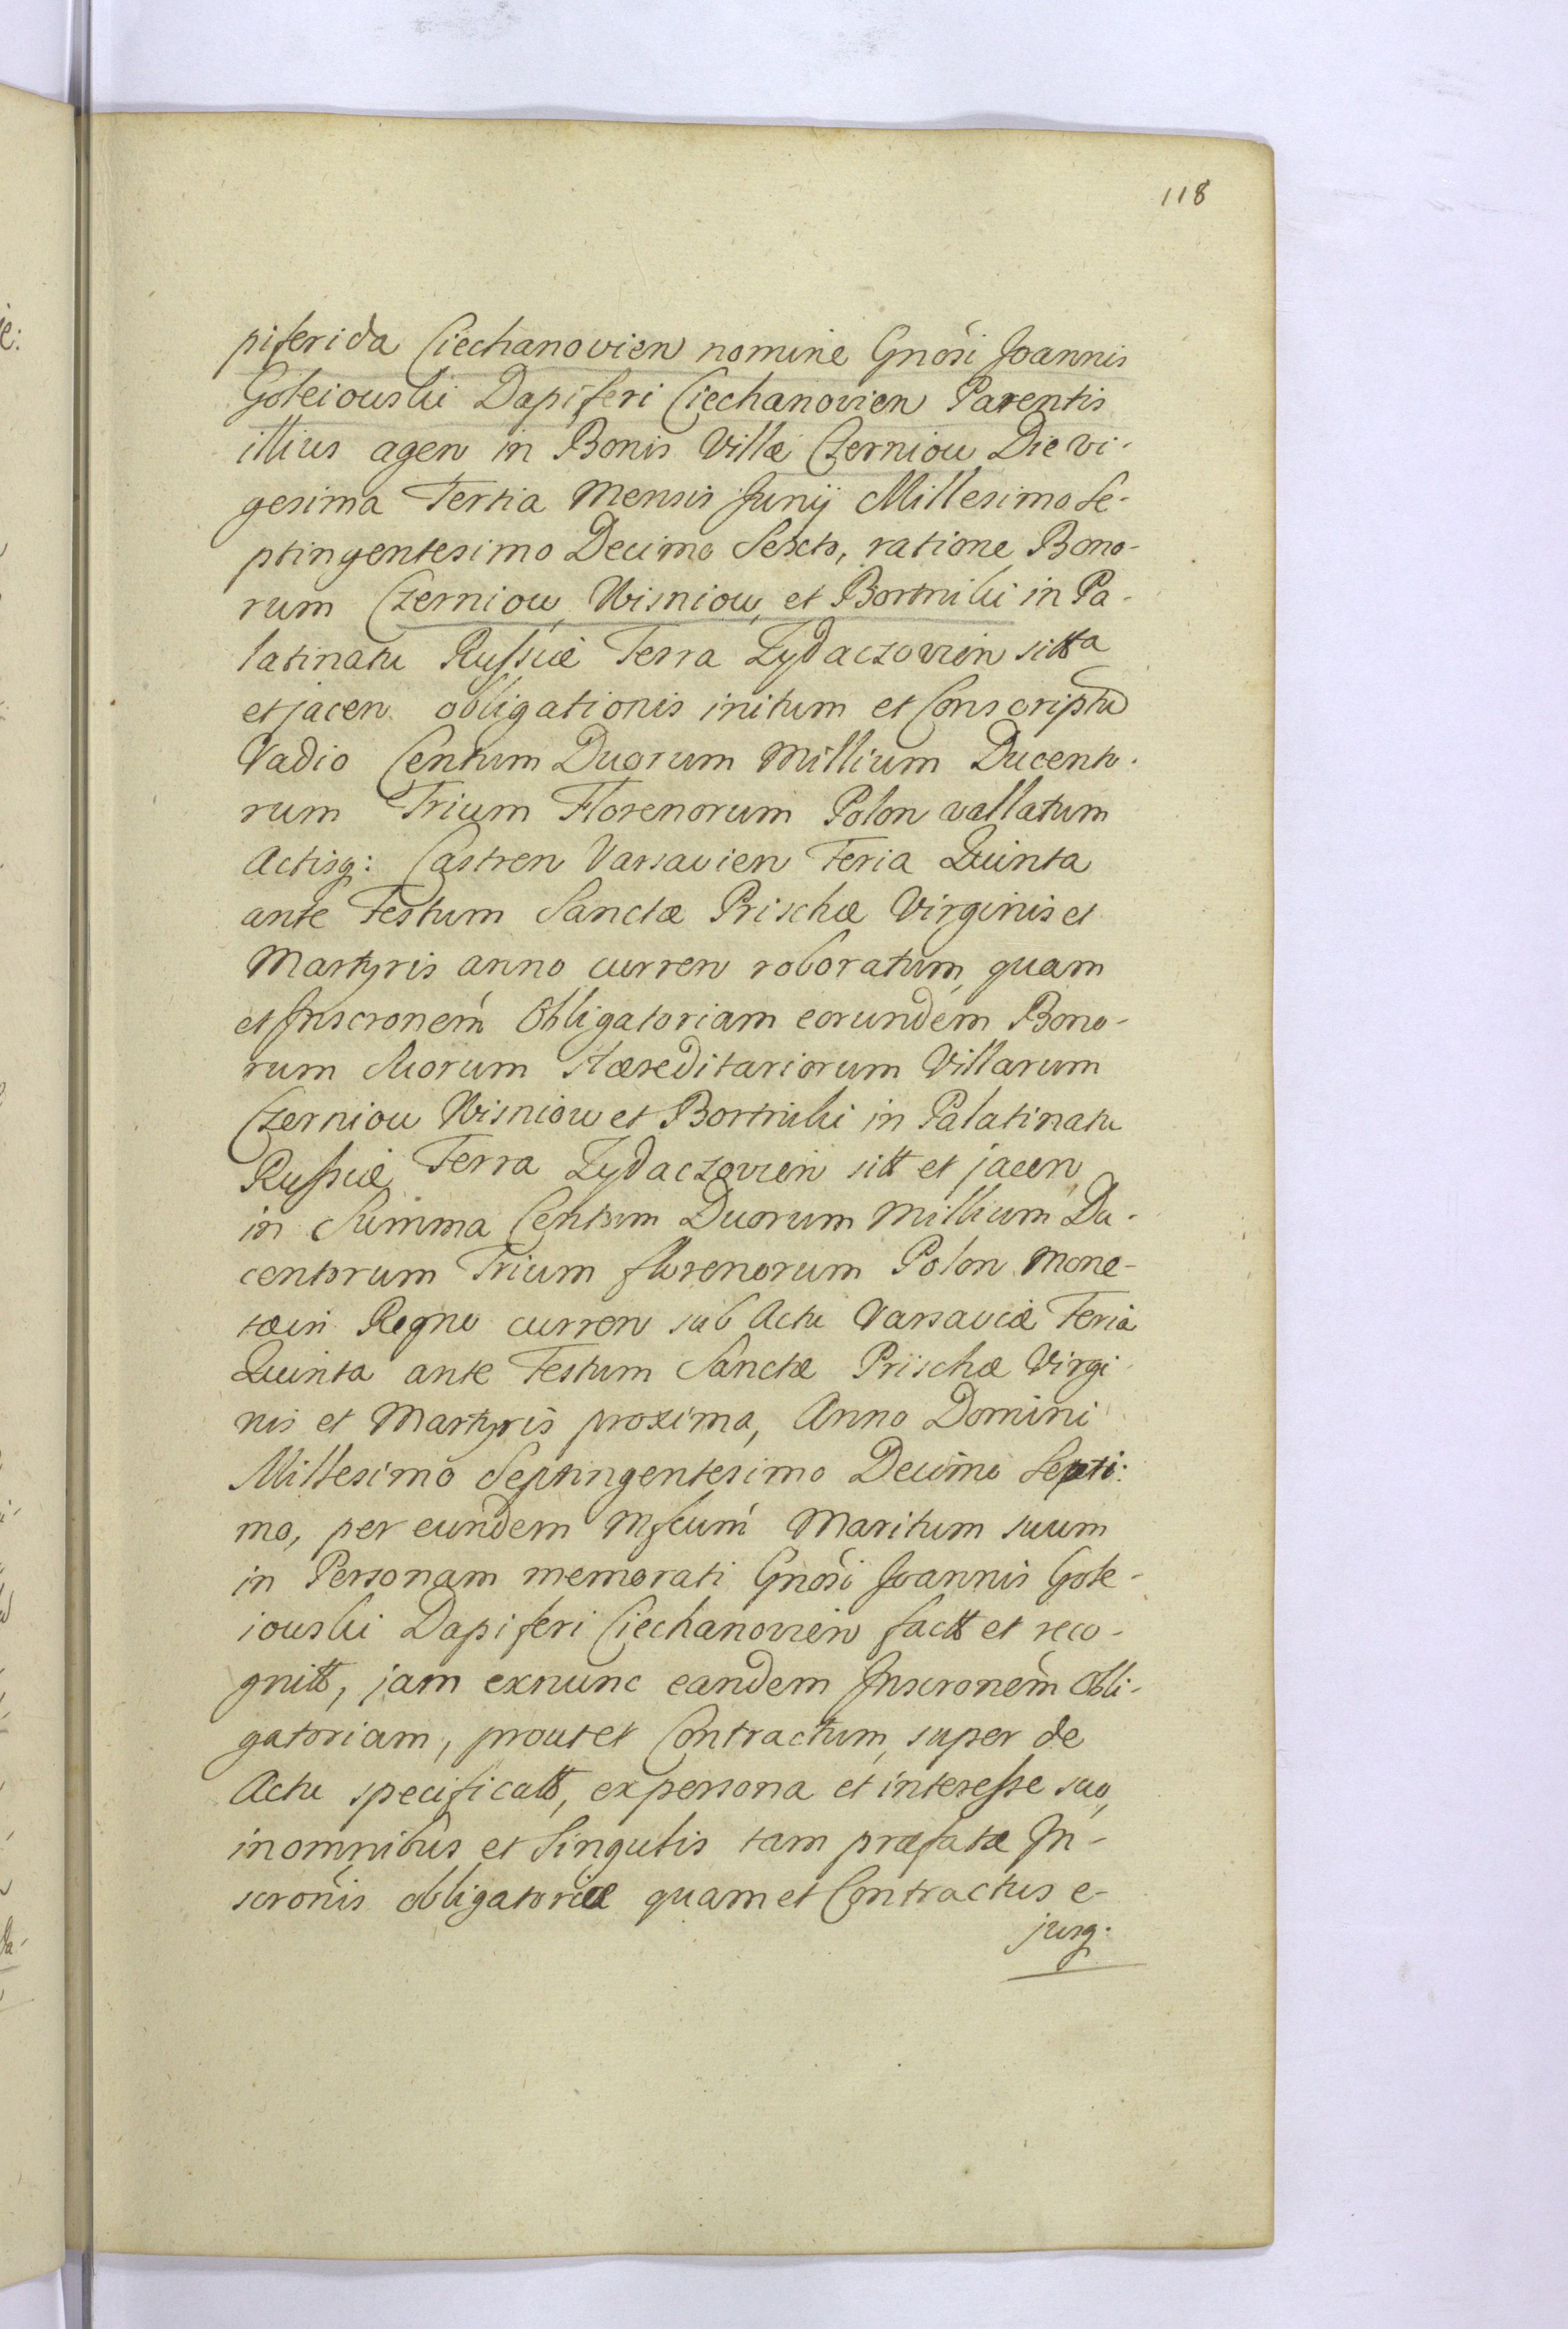 118
piferida Ciechanovien nomine Gnosi Joannis
Goleiouski Dapiferi Ciechanovien Parentis
illius agen in Bonis Villæ Czerniow Die vi-
gesima Tertia Mensis Junij Millesimo Se-
ptingentesimo Decimo Sexto, ratione Bono-
rum Czerniow, Wisniow, et Bortniki in Pa-
latinatu Russiæ Terra Zydaczovien sitta
et jacen obligationis initum et Conscriptũ
Vadio Centum Duorum Millium Ducento-
rum Trium Florenorum Polon vallatum
Actisq: Castren Varsavien Feria Quinta
ante Festum Sanctæ Prischæ Virginis et
Martyris anno curren roboratum, quam
et Inscronem Obligatoriam eorundem Bono-
rum Suorum Hæreditariorum Villarum
Czerniow Wisniow et Bortniki in Palatinatu
Russiæ Terra Zydaczovien sitt et jacen,
in Summa Centum Duorum Millium Du-
centorum Trium florenorum Polon Mone-
tæ in Regno curren sub Actu Varsaviæ Feria
Quinta ante Festum Sanctæ Prischæ Virgi-
nis et Martyris proxima, Anno Domini
Millesimo Septingentesimo Decimo Septi-
mo, per eundem Mfcum Maritum suum
in Personam memorati Gnosi Joannis Gole-
iouski Dapiferi Ciechanovien factt et reco-
gnitt, jam exnunc eandem Inscronem Obli-
gatoriam, prout et Contractum, super de
Actu specificatt, ex persona et interesse suo,
in omnibus et Singulis tam præfatæ In-
scronis obligatoriæ quam et Contractus e-
jusq.